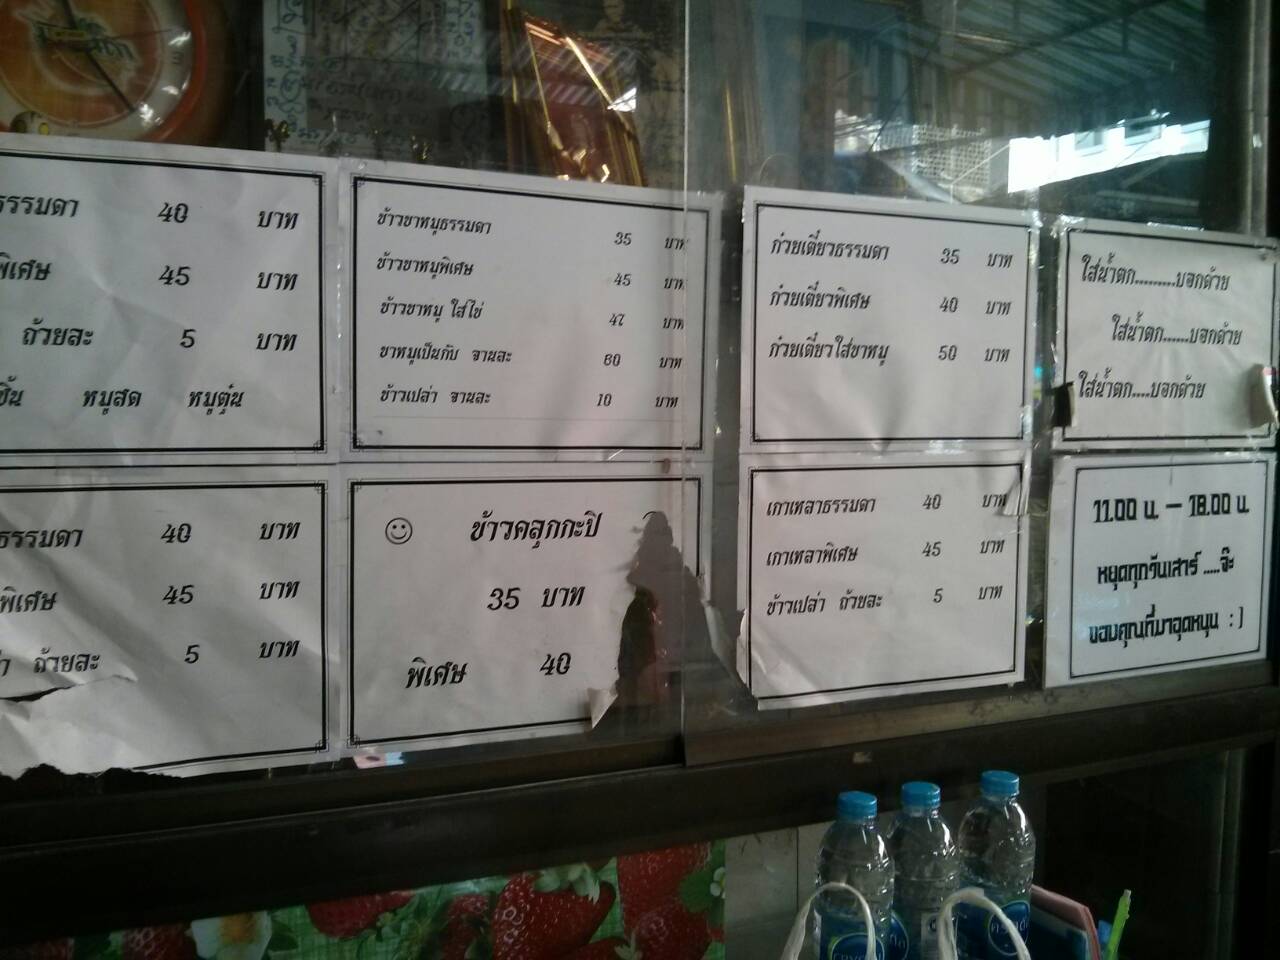 ธรรมดา 40 บาท
พิเศษ 45 บาท
ถ้วยละ 5 บาท
หมูสด หมูตุ๋น
ข้าวขาหมูธรรมดา 35 บาท
ข้าวขาหมูพิเศษ 45 บาท
ข้าวขาหมู ใส่ไข่ 47 บาท
ขาหมูเป็นกับ จานละ 60 บาท
ข้าวเปล่า จานละ 10 บาท
ก๋วยเตี๋ยวธรรมดา 35 บาท
ก๋วยเตี๋ยวพิเศษ 40 บาท
ก๋วยเตี๋ยวใส่ขาหมู 50 บาท
ใส่น้ำตก.........บอกด้วย
ใส่น้ำตก.......บอกด้วย
ใส่น้ำตก....บอกด้วย
ธรรมดา 40 บาท
พิเศษ 45 บาท
ถ้วยละ 5 บาท
ข้าวคลุกกะปิ
35 บาท
พิเศษ 40
เกาเหลาธรรมดา 40 บาท
เกาเหลาพิเศษ 45 บาท
ข้าวเปล่า ถ้วยละ 5 บาท
11.00 น. – 18.00 น.
หยุดทุกวันเสาร์ .....จ๊ะ
ขอบคุณที่มาอุดหนุน : )